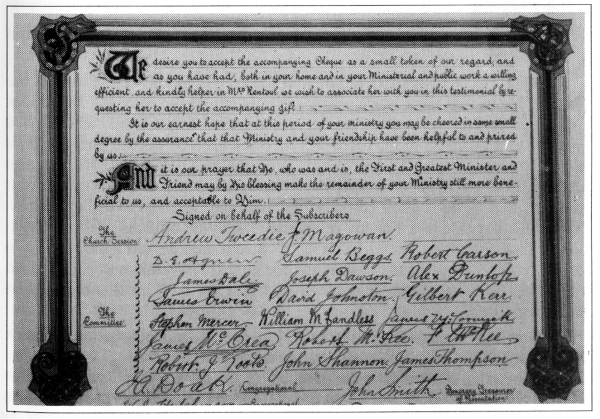 We desire you to accept the accompanying Cheque as a small token of our regard, and
as you have had, both in your home and in your Ministerial and public work a willing
efficient and kindly helper in Mrs Rentoul we wish to associate her with you in this testimonial by re-
questing her to accept the accompanying gift.
It is our earnest hope that at this period of your ministry you may be cheered in some small
degree by the assurance that that Ministry and your friendship have been helpful to and prized
by us.
And it is our prayer that He, who was and is, the First and Greatest Minister and
Friend may by His blessing make the remainder of your Ministry still more bene-
ficial to us, and acceptable to Him.
Signed on behalf of the Subscribers
The Church Session
Andrew Tweedie J. Magowan.
D. E. Agnew Samuel Beggs Robert Carson
James Daly Joseph Dawson. Alex Dunlop
James Erwin David Johnston, Gilbert Kerr
The Committee
Stephen Mercer William M. Landless James McCormick
James McCrea Robert M. Kee. McKee
Robert J Roots John Shannon, James Thompson
A Doak Congregational John Smith Treasurer
of Presentation